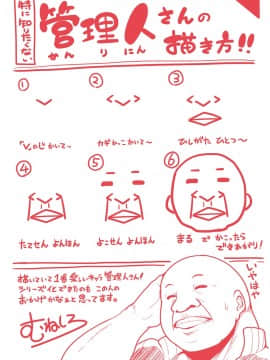 特に知りたくない
管理人さんの
かんりにん
描き方!!
①
②
③
「V」のじ かいて〜
カギかっこかいて〜
ひしがた ひとつ〜
④
⑤
⑥
たてせん よんほん
よこせん よんほん
まる で かこったら
できあがり!
描いていて1番楽しいキャラ管理人さん!
シリーズ化できたのも この人の
おかげかなぁと思ってます。
むねしろ
いやはや